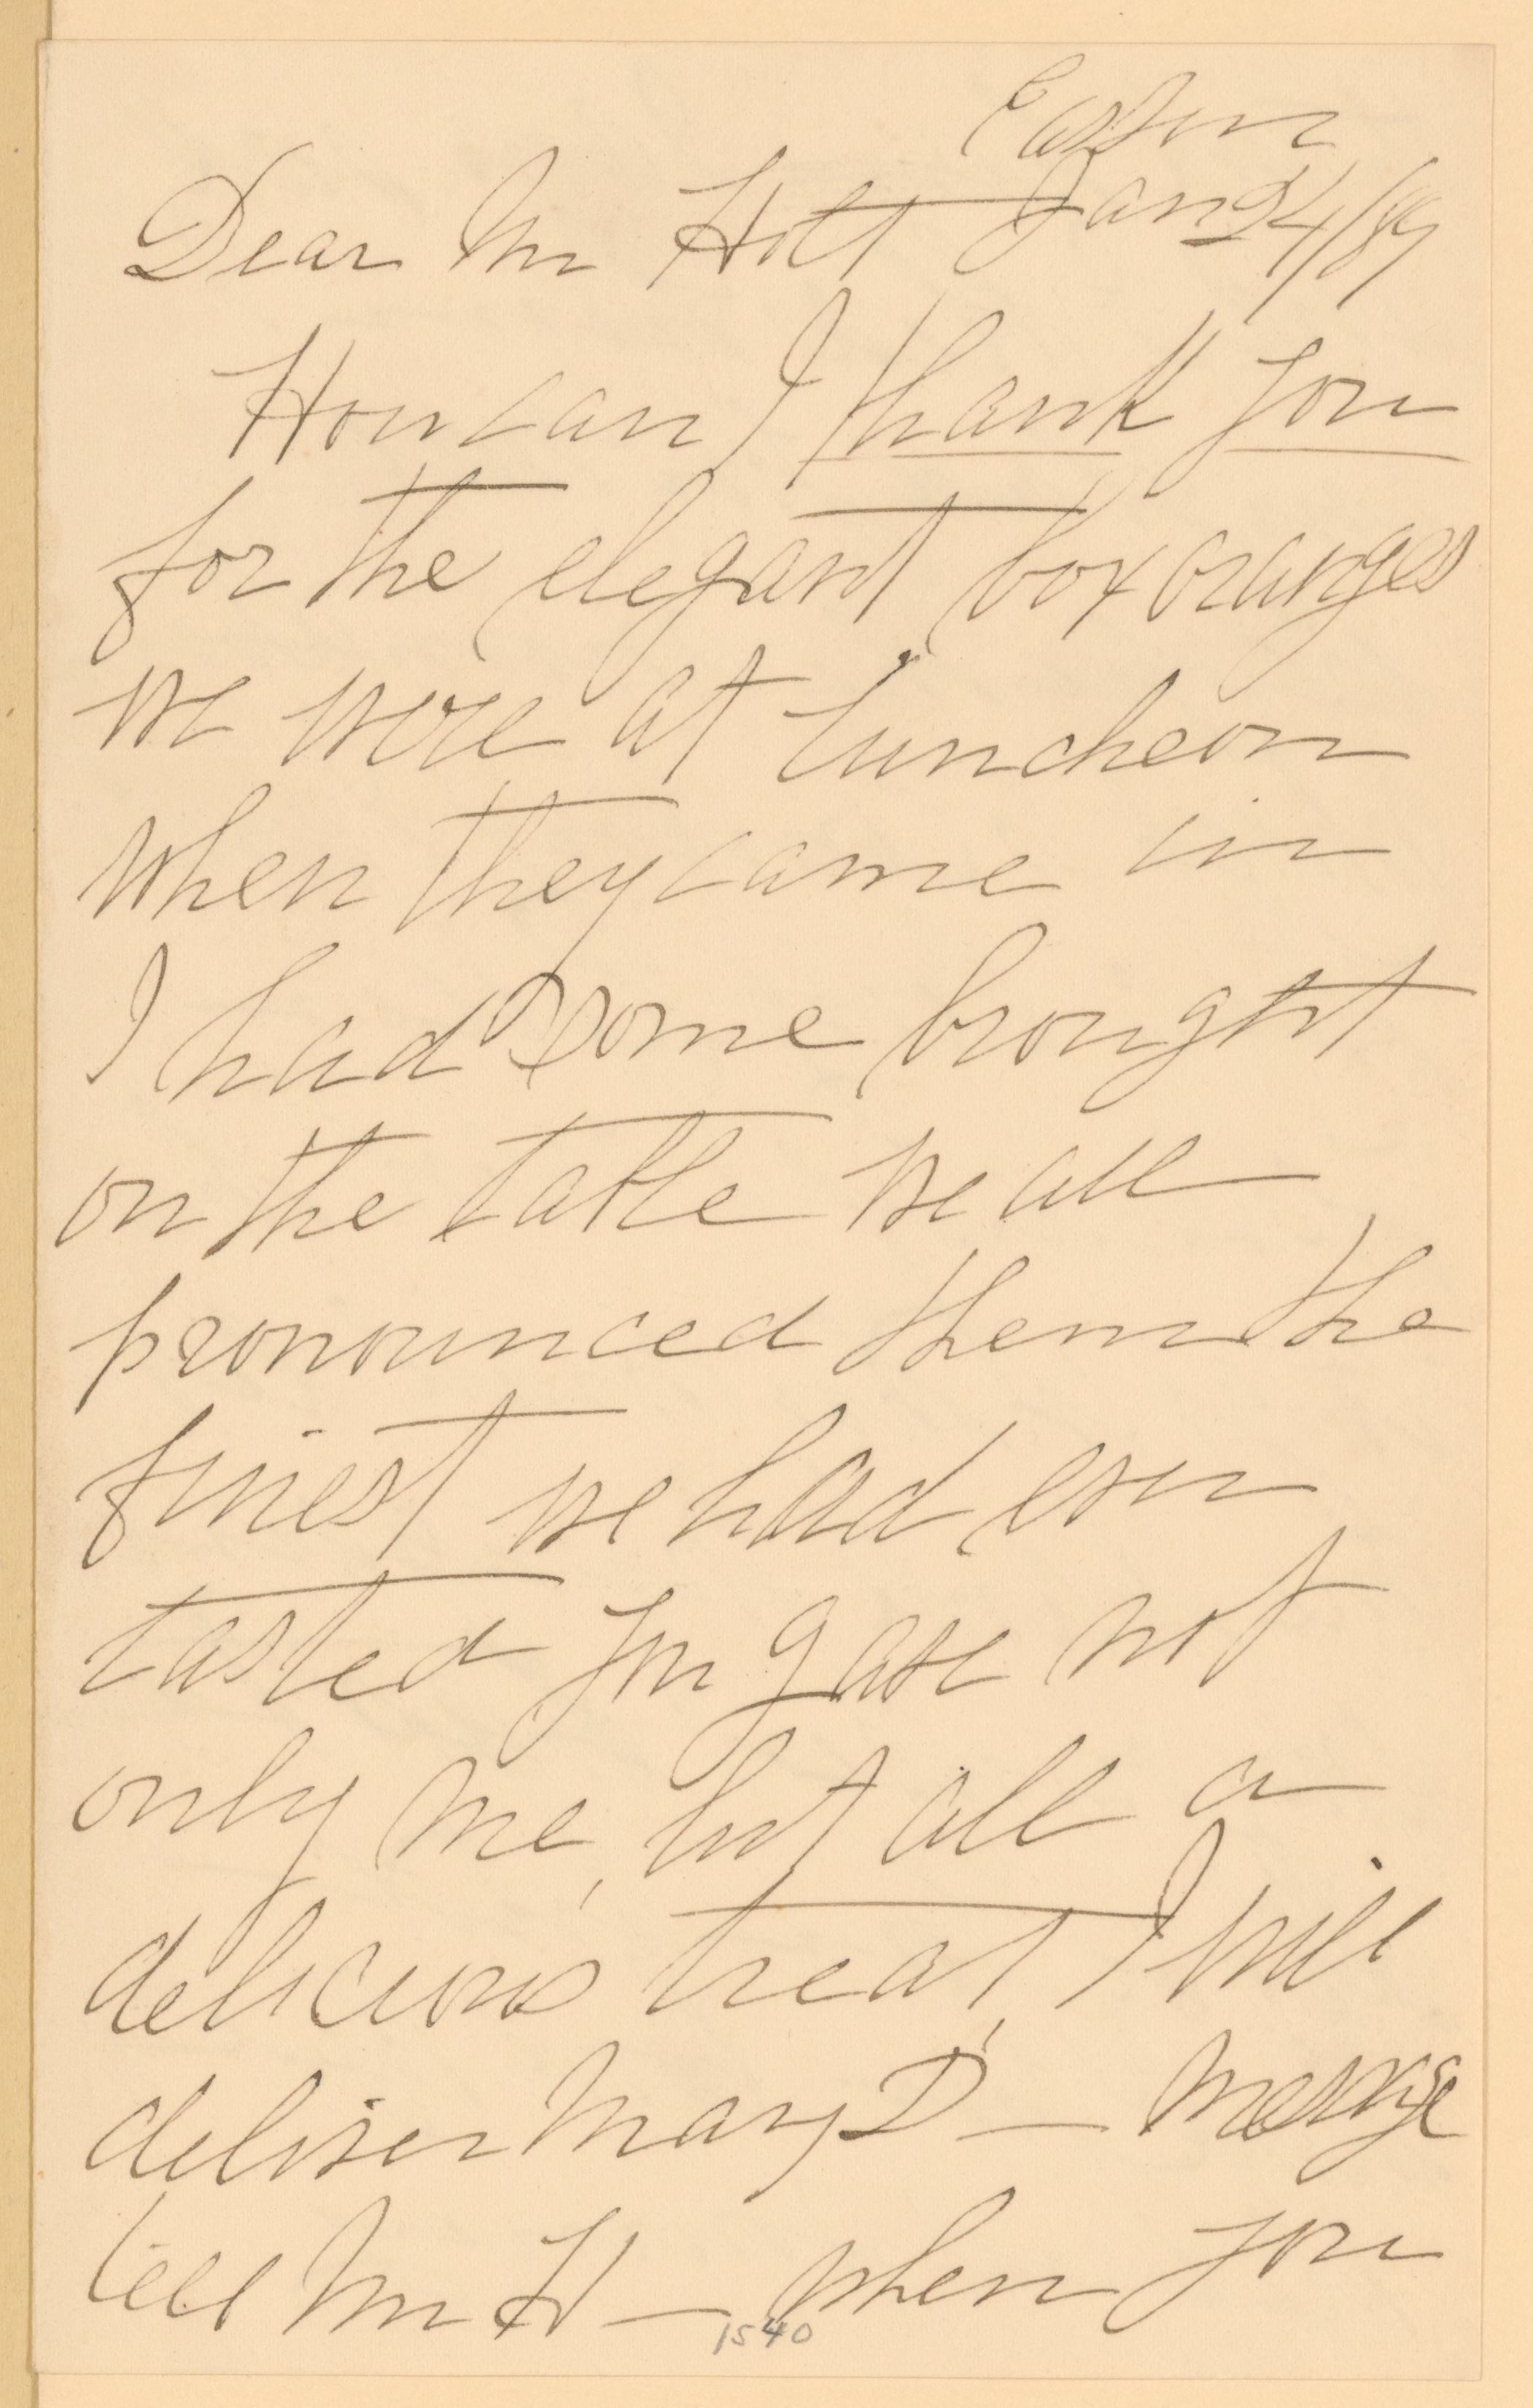 Easton
Dear Mr Holt Jan 24/89
How can I thank you
for the elegant box oranges
we were at Luncheon
when they came in
I had some brought
on the table we all
pronounced them the
finest we had ever
tasted you gave not
only me, but all a
delicious treat, I will
deliver Mary D— message
tell Mr H— when you
1540